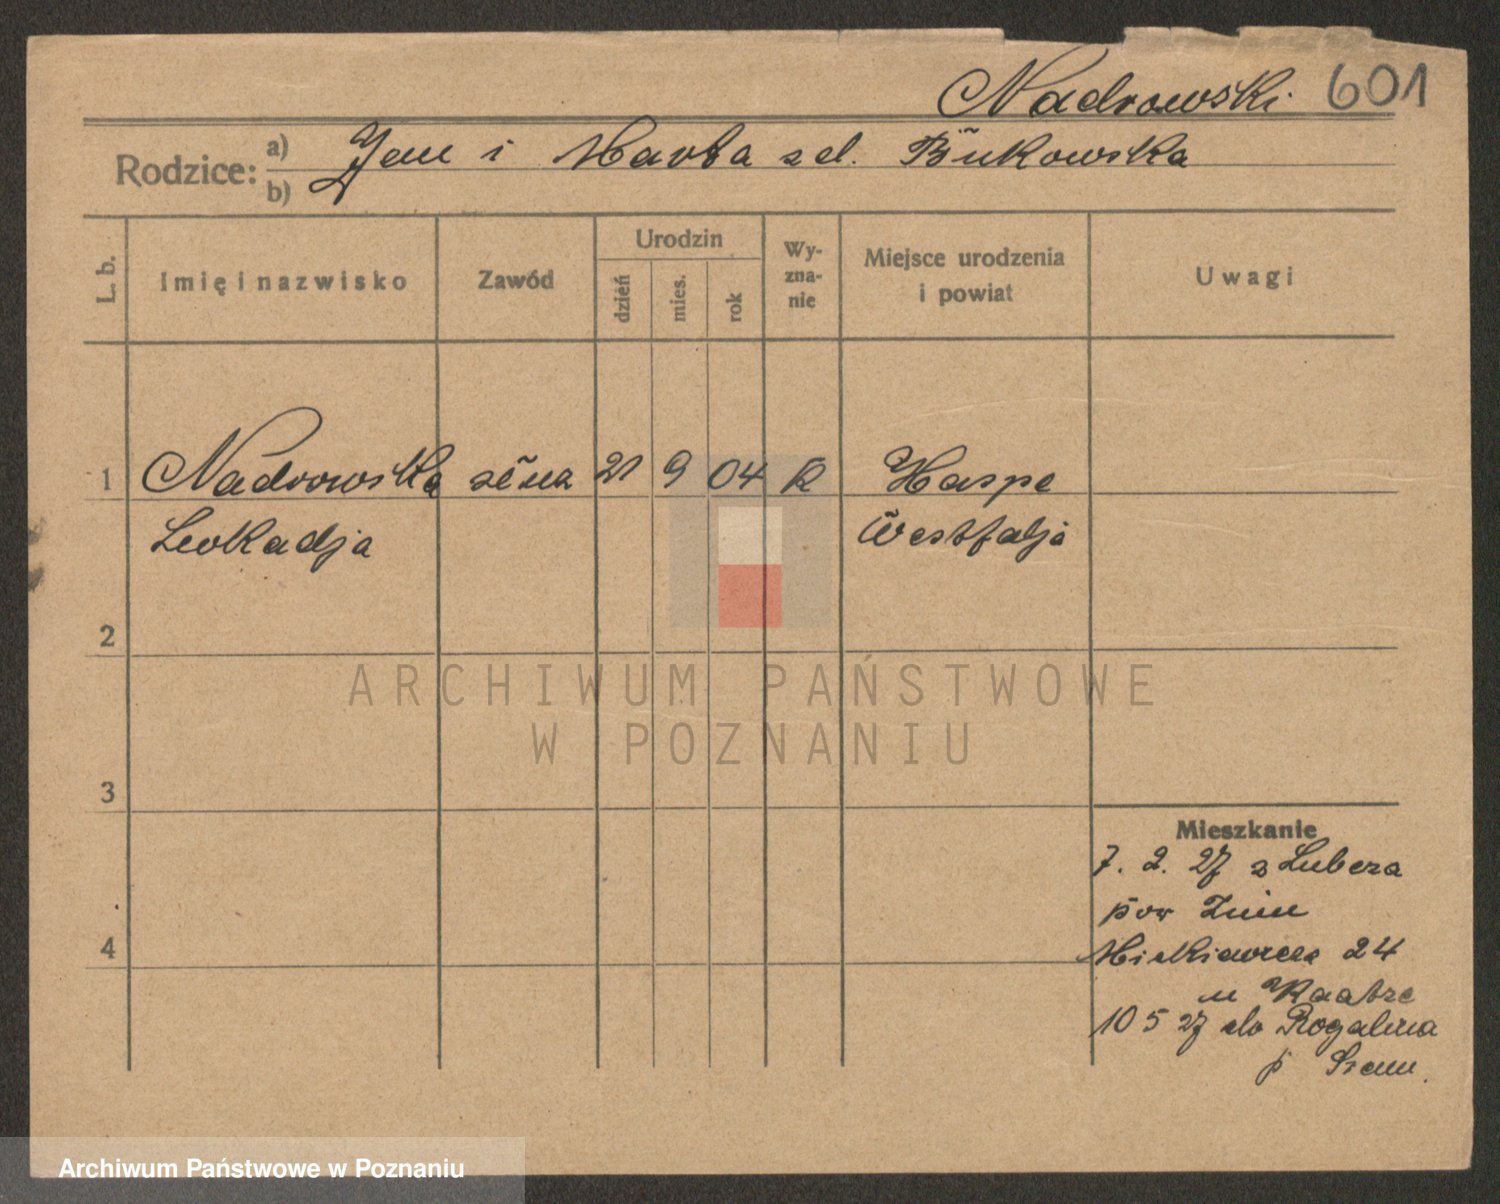 Nadrowski 601
Rodzice: a) Jan i Marta z d. Bukowska
b)
L. b. Imię i nazwisko Zawód Urodzin dzień mies. rok Wyznanie Miejsce urodzenia i powiat Uwagi
1 Nadrowska 21 9 04 k Haspe
Leokadja Westfalja
2
ARCHIWUM PAŃSTWOWE
W POZNANIU
3
Mieszkanie
7. 2. 27 z Lubcza
pow Żnin
4
Mickiewicza 24
u
10 5 27 do Rogalina
p Śrem.
Archiwum Państwowe w Poznaniu